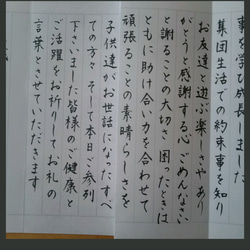 事を学び成長しました
集団生活での約束事を知り
お友達と遊ぶ楽しさやあり
がとうと感謝する心ごめんなさい
と謝ることの大切さ困ったときは
ともに助け合い力を合わせて
頑張ることの素晴らしさを
子供達がお世話になったすべ
ての方々そして本日ご参列
下さいました皆様のご健康と
ご活躍をお祈りしてお礼の
言葉とさせていただきます